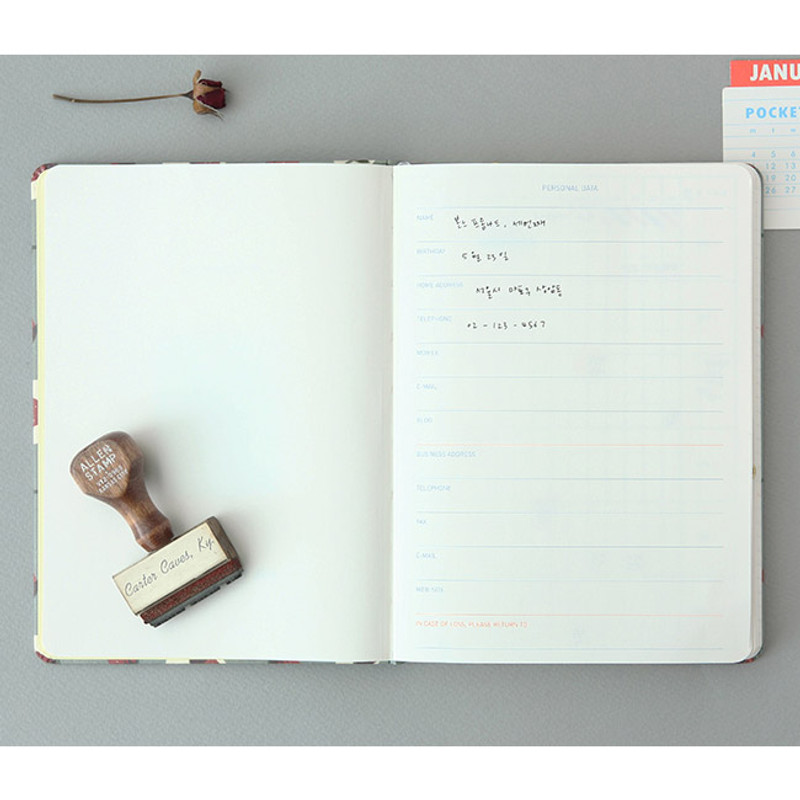 JANU
POCKE
m t w
4 5 6
12 13
19 20
26 27
PERSONAL DATA
NAME
본느프룹내드, 세번째
BIRTHDAY
5월 23일
HOME ADDRESS
서울시 마포구 상암동
TELEPHONE
02-123-4567
MOBILE
E-MAIL
BLOG
BUSINESS ADDRESS
TELEPHONE
FAX
E-MAIL
WEB SITE
IN CASE OF LOSS, PLEASE RETURN TO
ALLEN
STAMP
KANSAS CITY
Carter Caves, Ky.